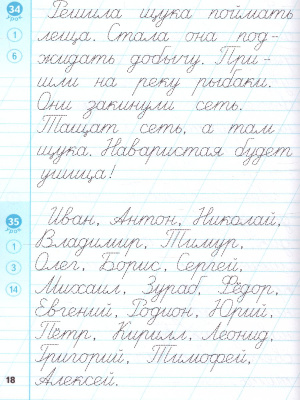 34 Решила щука поймать
урок
1 леща. Стала она под-
6 жидать добычу. При-
шли на реку рыбаки.
Они закинули сеть.
Тащат сеть, а там
щука. Наваристая будет
ушица!
35 Иван, Антон, Николай,
урок
1 Владимир, Тимур,
3 Олег, Борис, Сергей,
14 Михаил, Зураб, Фёдор,
Евгений, Родион, Юрий,
Пётр, Кирилл, Леонид,
18 Григорий, Тимофей,
Алексей.